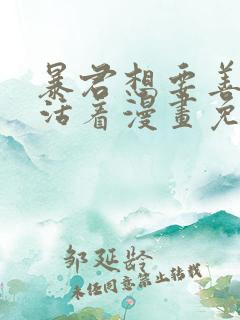 暴君想要善
活着漫畫免
邹延龄
未经同意禁止转载